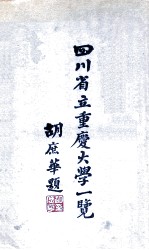 四川省立重慶大學一覽
胡庶華題